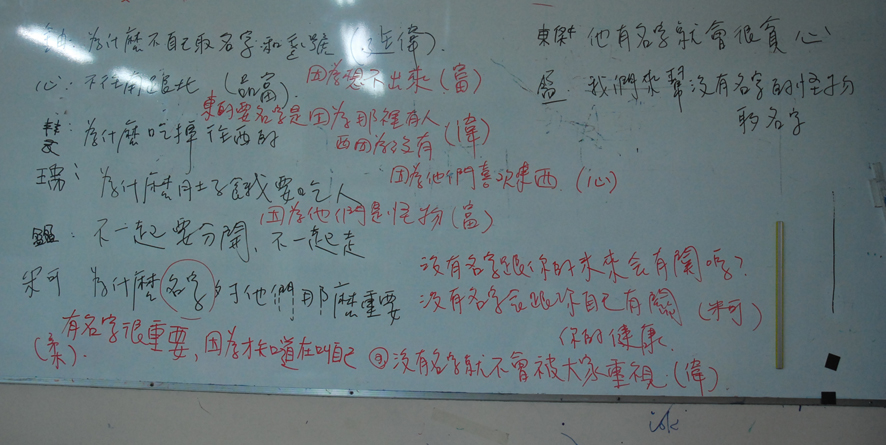 為什麼不自己取名字和 (連偉).
東傑 他有名字就會很貪心
心: 不往南 北 (品富).
因為想不出來 (富)
我們來幫沒有名字的怪物
取名字
東的要名字是因為那裡有人
為什麼吃掉往西的
西因為沒有 (偉)
為什麼肚子餓要吃人
因為他們喜歡東西 (心)
因為他們是怪物 (富)
鑑: 不一起要分開、不一起走
沒有名字跟你的未來会有關嗎?
宋可 為什麼名字 他們那麼重要
沒有名字会跟你自己有關 (宋可)
你的健康.
有名字很重要, 因為才知道在叫自己
沒有名字就不會被大家重視 (偉).